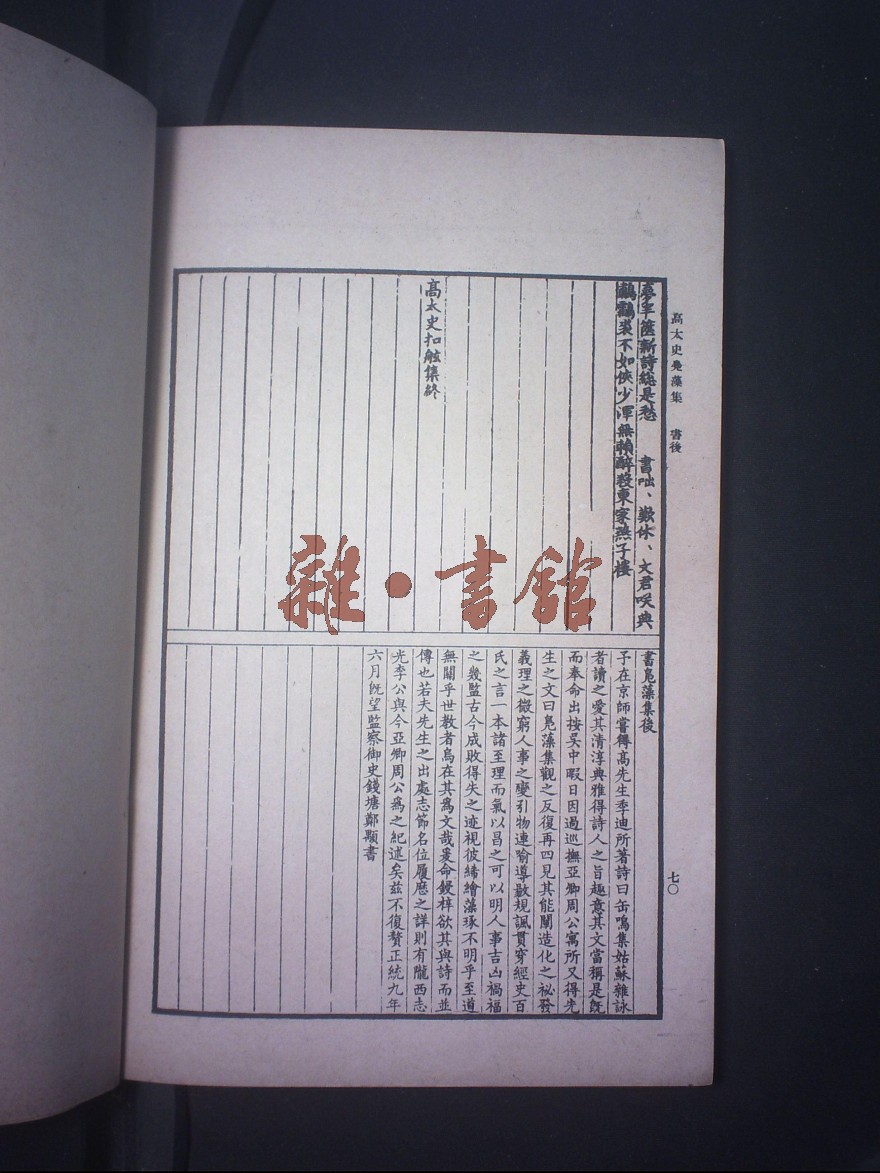 高太史鳧藻集 書後
夢芊篋新詩総是愁 書咄、歎休、文君唉典
鷫鸘裘不如俠少渾無賴醉殺東家燕子樓
高太史扣舷集終
書鳧藻集後
予在京師嘗得高先生季迪所著詩曰缶鳴集姑蘇雜詠
者讀之愛其清淳典雅得詩人之旨趣意其文當稱是旣
而奉命出按吳中暇日因過巡撫亞卿周公寓所又得先
生之文曰鳧藻集觀之反復再四見其能闡造化之祕發
義理之微窮人事之變引物連喻導敭規諷貫穿經史百
氏之言一本諸至理而氣以昌之可以明人事吉凶禍福
之幾監古今成敗得失之迹視彼絺繪藻琢不明乎至道
無關乎世教者烏在其爲文哉爰命鋟梓欲其與詩而並
傳也若夫先生之出處志節名位履歷之詳則有隴西志
光李公與今亞卿周公爲之紀述矣茲不復贅正統九年
六月旣望監察御史錢塘鄭顒書
七〇
雜·書館